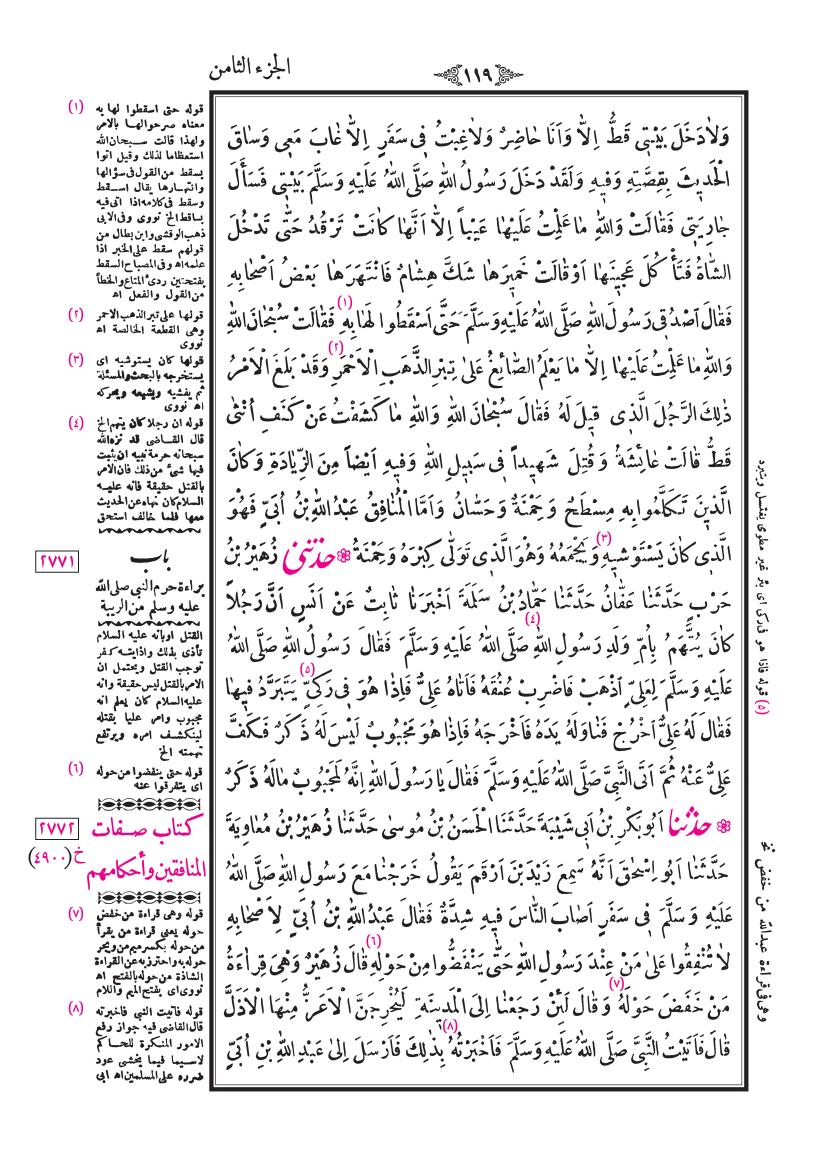 الجزء الثامن
١١٩
وَلَا دَخَلَ بَيْتِي قَطُّ اِلَّا وَاَنَا حَاضِرٌ وَلَا غِبْتُ فِي سَفَرٍ اِلَّا غَابَ مَعِي وَسَاقَ
الْحَدِيثَ بِقِصَّتِهِ وَفِيهِ وَلَقَدْ دَخَلَ رَسُولُ اللهِ صَلَّى اللهُ عَلَيْهِ وَسَلَّمَ بَيْتِي فَسَأَلَ
جَارِيَتِي فَقَالَتْ وَاللهِ مَا عَلِمْتُ عَلَيْهَا عَيْباً اِلَّا اَنَّهَا كَانَتْ تَرْقُدُ حَتَّى تَدْخُلَ
الشَّاةُ فَتَأْكُلَ عَجِينَهَا اَوْ قَالَتْ خَمِيرَهَا شَكَّ هِشَامٌ فَانْتَهَرَهَا بَعْضُ اَصْحَابِهِ
فَقَالَ اَصْدُقِي رَسُولَ اللهِ صَلَّى اللهُ عَلَيْهِ وَسَلَّمَ حَتَّى اَسْقَطُوا لَهَا بِهِ (١) فَقَالَتْ سُبْحَانَ اللهِ
وَاللهِ مَا عَلِمْتُ عَلَيْهَا اِلَّا مَا يَعْلَمُ الصَّائِغُ عَلَى تِبْرِ الذَّهَبِ الْاَحْمَرِ (٢) وَقَدْ بَلَغَ الْاَمْرُ
ذٰلِكَ الرَّجُلَ الَّذِي قِيلَ لَهُ فَقَالَ سُبْحَانَ اللهِ وَاللهِ مَا كَشَفْتُ عَنْ كَنَفِ اُنْثَى
قَطُّ قَالَتْ عَائِشَةُ وَقُتِلَ شَهِيداً فِي سَبِيلِ اللهِ وَفِيهِ اَيْضاً مِنَ الزِّيَادَةِ وَكَانَ
الَّذِينَ تَكَلَّمُوا بِهِ مِسْطَحٌ وَحَمْنَةُ وَحَسَّانُ وَاَمَّا الْمُنَافِقُ عَبْدُ اللهِ بْنُ اُبَيٍّ فَهُوَ
الَّذِي كَانَ يَسْتَوْشِيهِ (٣) وَيَجْمَعُهُ وَهُوَ الَّذِي تَوَلَّى كِبْرَهُ وَحَمْنَةُ ۞ حَدَّثَنِي زُهَيْرُ بْنُ
حَرْبٍ حَدَّثَنَا عَفَّانُ حَدَّثَنَا حَمَّادُ بْنُ سَلَمَةَ اَخْبَرَنَا ثَابِتٌ عَنْ اَنَسٍ اَنَّ رَجُلاً
كَانَ يُتَّهَمُ (٤) بِاُمِّ وَلَدِ رَسُولِ اللهِ صَلَّى اللهُ عَلَيْهِ وَسَلَّمَ فَقَالَ رَسُولُ اللهِ صَلَّى اللهُ
عَلَيْهِ وَسَلَّمَ لِعَلِيٍّ اَذْهَبْ فَاضْرِبْ عُنُقَهُ فَاَتَاهُ عَلِيٌّ فَاِذَا هُوَ فِي رَكِيٍّ (٥) يَتَبَرَّدُ فِيهَا
فَقَالَ لَهُ عَلِيٌّ اَخْرُجْ فَنَاوَلَهُ يَدَهُ فَاَخْرَجَهُ فَاِذَا هُوَ مَجْبُوبٌ لَيْسَ لَهُ ذَكَرٌ فَكَفَّ
عَلِيٌّ عَنْهُ ثُمَّ اَتَى النَّبِيَّ صَلَّى اللهُ عَلَيْهِ وَسَلَّمَ فَقَالَ يَا رَسُولَ اللهِ اِنَّهُ لَمَجْبُوبٌ مَالَهُ ذَكَرٌ
۞ حَدَّثَنَا اَبُو بَكْرِ بْنُ اَبِي شَيْبَةَ حَدَّثَنَا الْحَسَنُ بْنُ مُوسَى حَدَّثَنَا زُهَيْرُ بْنُ مُعَاوِيَةَ
حَدَّثَنَا اَبُو اِسْحٰقَ اَنَّهُ سَمِعَ زَيْدَ بْنَ اَرْقَمَ يَقُولُ خَرَجْنَا مَعَ رَسُولِ اللهِ صَلَّى اللهُ
عَلَيْهِ وَسَلَّمَ فِي سَفَرٍ اَصَابَ النَّاسَ فِيهِ شِدَّةٌ فَقَالَ عَبْدُ اللهِ بْنُ اُبَيٍّ لِاَصْحَابِهِ
لَا تُنْفِقُوا عَلَى مَنْ عِنْدَ رَسُولِ اللهِ حَتَّى يَنْفَضُّوا مِنْ حَوْلِهِ (٦) قَالَ زُهَيْرٌ وَهِيَ قِرَاءَةُ
مَنْ خَفَضَ حَوْلَهُ (٧) وَقَالَ لَئِنْ رَجَعْنَا اِلَى الْمَدِينَةِ لَيُخْرِجَنَّ الْاَعَزُّ مِنْهَا الْاَذَلَّ
قَالَ فَاَتَيْتُ النَّبِيَّ صَلَّى اللهُ عَلَيْهِ وَسَلَّمَ فَاَخْبَرْتُهُ (٨) بِذٰلِكَ فَاَرْسَلَ اِلَى عَبْدِ اللهِ بْنِ اُبَيٍّ
(١) قوله حتى اسقطوا لها به
معناه صرحوا لها بالامر
ولهذا قالت سبحان الله
استعظاما لذلك وقيل اتوا
بسقط من القول فى سؤالها
وانتهارها يقال اسقط
وسقط فى كلامه اذا اتى فيه
بساقط الخ نووى وفى الابى
ذهب الوقشى وابن بطال من
قولهم سقط على الخبر اذا
علمه اه وفى المصباح السقط
بفتحتين ردئ المتاع والخطأ
من القول والفعل اه
(٢) قولها على تبر الذهب الاحمر
وهى القطعة الخالصة اه
نووى
(٣) قولها كان يستوشيه اى
يستخرجه بالبحث والمسئلة
ثم يفشيه ويشيعه ويحركه
اه نووى
(٤) قوله ان رجلا كان يتهم الخ
قال القاضى قد نزه الله
سبحانه حرمة نبيه ان يثبت
فيها شئ من ذلك فان الامر
بالقتل حقيقة فانه عليه
السلام كان نهاه عن الحديث
معها فلما خالف استحق
٢٧٧١
باب
براءة حرم النبى صلى الله
عليه وسلم من الريبة
القتل اوبانه عليه السلام
تأذى بذلك واذايته كفر
توجب القتل ويحتمل ان
الامر بالقتل ليس حقيقة وانه
عليه السلام كان يعلم انه
مجبوب وامر عليا بقتله
لينكشف امره ويرتفع
تهمته الخ
(٦) قوله حتى ينفضوا من حوله
اى يتفرقوا عنه
٢٧٧٢
خ (٤٩٠٠)
كتاب صفات
المنافقين وأحكامهم
(٧) قوله وهى قراءة من خفض
حوله يعنى قراءة من يقرأ
من حوله بكسر ميم من وبجر
حوله به واحترز به عن القراءة
الشاذة من حوله بالفتح اه
نووى اى بفتح الميم واللام
(٨) قوله فاتيت النبى فاخبرته
قال القاضى فيه جواز رفع
الامور المنكرة للحاكم
لاسيما فيما يخشى عود
ضرره على المسلمين اه ابى
(٥) قوله فاذا هو فى ركى اى بئر غير مطوى يغتسل ويتبرد
وهى فى قراءة عبدالله من خفض